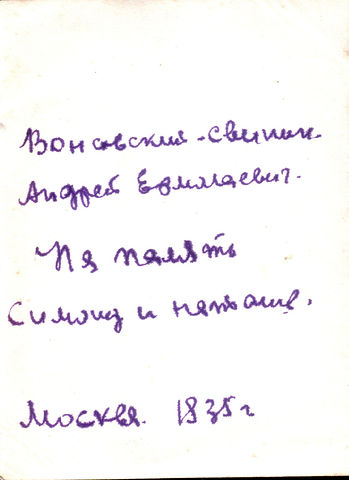 Вонсовский-Свинин.
Андрей Ермилаевич.
На память
Симону и Наташе.
Москва. 1835 г